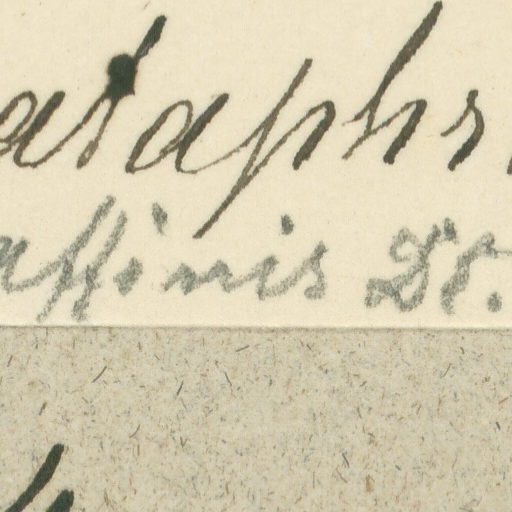 ataphr
affinis Dr.